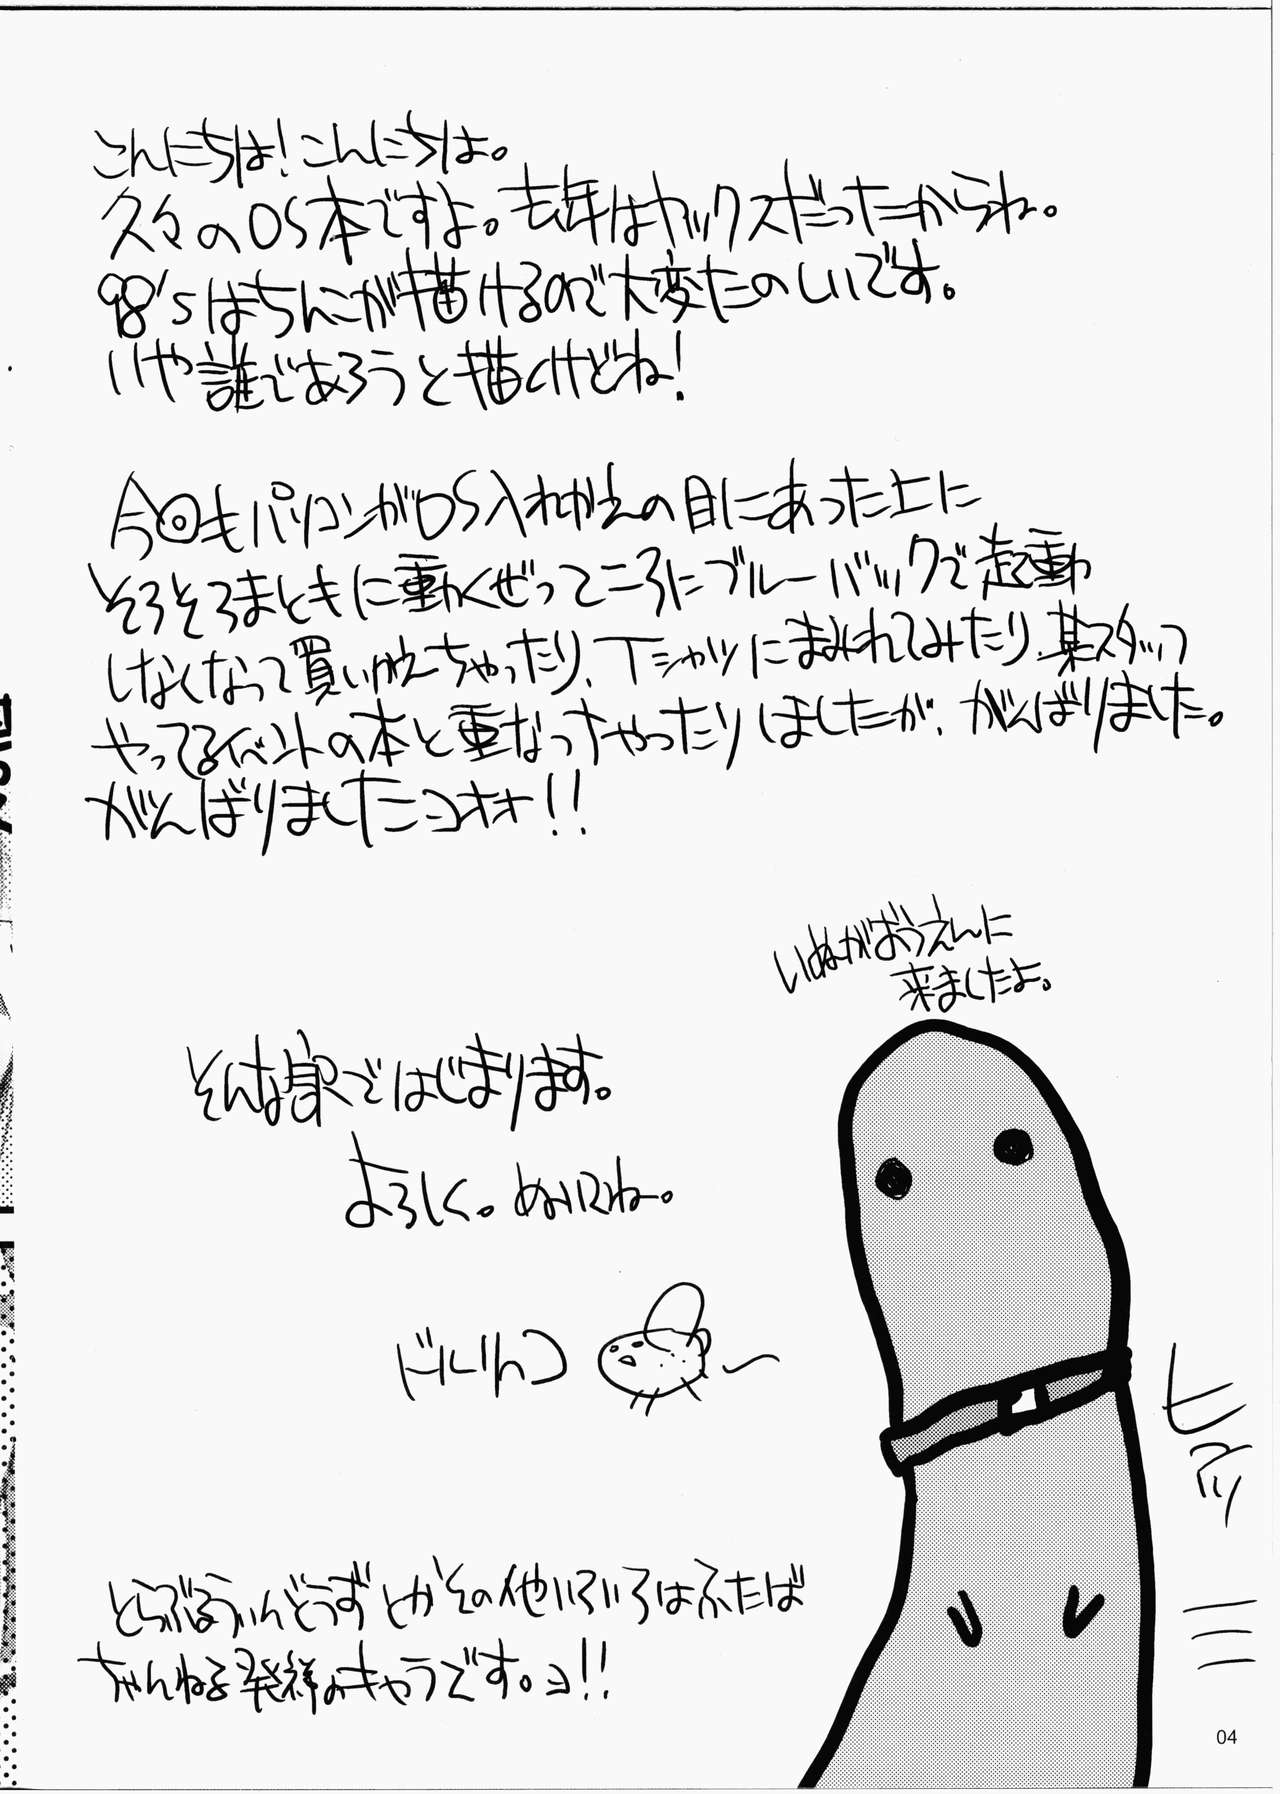 こんにちは!こんにちは。
久々のOS本ですよ。去年はヤックスだったからね。
98'sはちんこが描けるので大変たのしいです。
いや誰であろうと描くけどね!
今回もパソコンがOS入れかえの目にあった上に
そろそろまともに動くぜってころにブルーバックで起動
しなくなって買いかえちゃったり、Tシャツにまみれてみたり、某スタッフ
やってるイベントの本と重なっちゃったりしましたが、がんばりました。
がんばりましたニョオオ!!
いぬがおうえんに
来ましたよ。
そんな訳ではじまります。
よろしく。ぬいにね。
ドルリヘつ
ヒアッ
とらぶるうぃんどうずとかその他いろいろはふたば
ちゃんねる発祥のキャラです。ョ!!
04